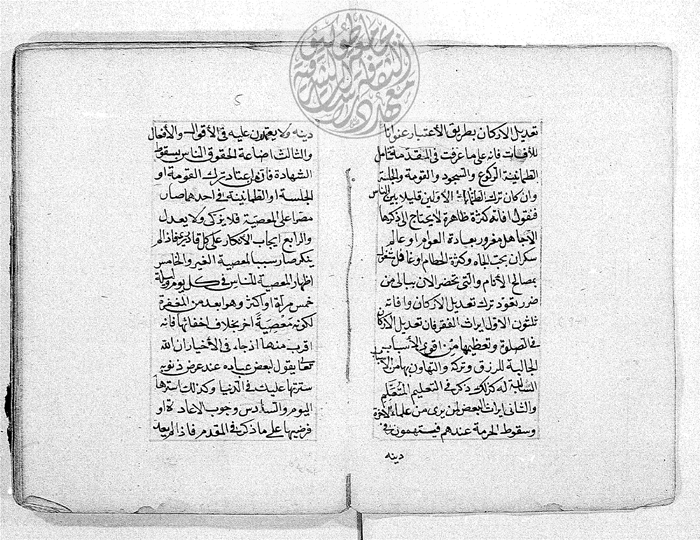 تعديل الاركان بطريق الاعتبار عنوانا
للآفات فانه على ما عرفت في المقدمة شامل
الطمانينة الركوع والسجود والقومة والجلسة
وان كان ترك الاولين قليلا بين الناس
فنقول افاته كثيرة ظاهرة لا يحتاج الى ذكرها
الا جاهل مغرور بعبادة العوام او عالم
سكران بحب الجاه وكثرة الحطام او غافل
بمصالح الانام والتي تحضر الان ببالي من
ضرر تعود ترك تعديل الاركان وافاته
ثلثون الاول ايراث الفقر فان تعديل الاركان
في الصلوة وتعظيمها من اقوى الاسباب
الجالبة للرزق وتركه والتهاون بها من
السالبة له كذلك ذكر في التعليم المتعلم
والثاني ايراث البغض لمن يرى من علماء الاخرة
وسقوط الحرمة عندهم فيتهمون في
دينه
دينه ولا يعتمدون عليه في الاقوال والأفعال
والثالث اضاعة الحقوق الناس بسقوط
الشهادة فان من اعتاد ترك القومة او
الجلسة او الطمانينة في احدهما صار
مصرا على المعصية فلا يزكى ولا يعدل
والرابع ايجاب الانكار على كل قادر فاذا لم
ينكر صار سببا لمعصية الغير والخامس
اظهار المعصية للناس في كل يوم وليلة
خمس مرات او اكثر وهو ابعد من المغفرة
لكونه معصية آخر بخلاف اخفائها فانه
اقرب منها اذ جاء في الأخبار ان الله
تعالى يقول لبعض عباده عند عرض ذنوبه
سترتها عليك في الدنيا وكذلك استرها
اليوم والسادس وجوب الاعادة او
فرضيها على ما ذكر في المقدم فاذا لم يعد